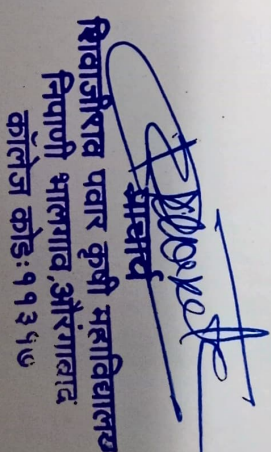 प्राचार्य
शिवाजीराव पवार कृषी महाविद्यालय
निपाणी भालगाव,औरंगाबाद
कॉलेज कोड:११३५७